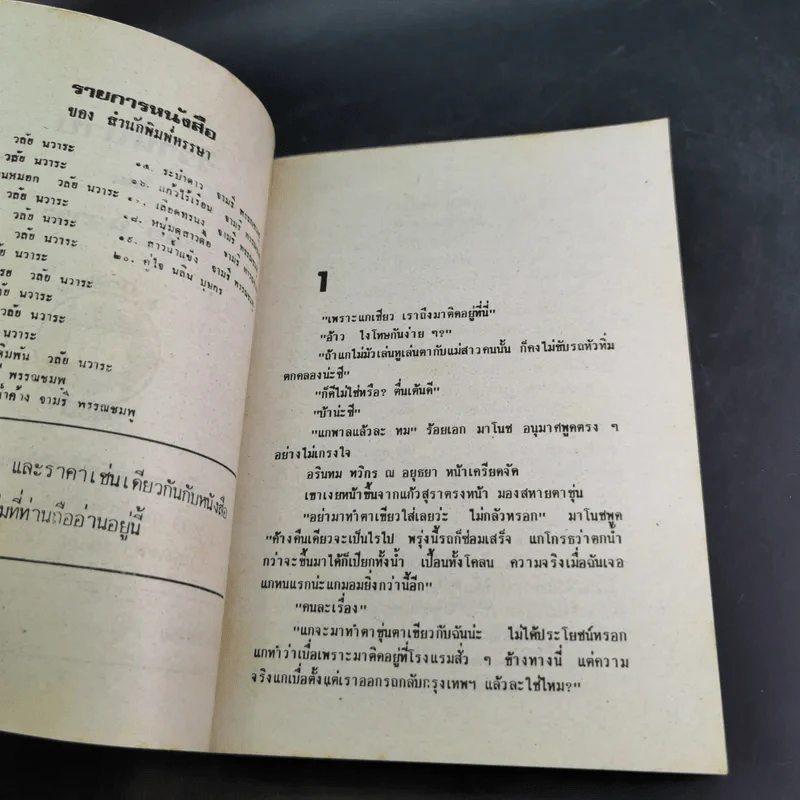 รายการหนังสือ
ของ สำนักพิมพ์หรรษา
วลัย นวาระ
วลัย นวาระ
นหมอก วลัย นวาระ
วลัย นวาระ
วลัย นวาระ
วลัย นวาระ
วลัย นวาระ
วลัย นวาระ
วลัย นวาระ
นวาระ
วลัย นวาระ
พรรณชมพู
จามรี พรรณชมพู
๑๕. ระบำดาว จามรี พรรณชมพู
๑๖. แก้วไร้เรือน จามรี
๑๗. เลือดทรนง จามรี
๑๘. หนุ่มดุสาวดื้อ จามรี
๑๙. สาวน้ำแข็ง จามรี พรรณ
๒๐. คู่ใจ นลิน บุษกร
และราคาเช่นเดียวกันกับหนังสือ
ที่ท่านถืออ่านอยู่นี้
1
"เพราะแกเชียว เราถึงมาติดอยู่ที่นี่"
"อ้าว ไงโทษกันง่าย ๆ?"
"ถ้าแกไม่มัวเล่นหูเล่นตากับแม่สาวคนนั้น ก็คงไม่ขับรถหัวทิ่ม
ตกคลองน่ะซี"
"ก็ดีไม่ใช่หรือ? ตื่นเต้นดี"
"บ้าน่ะซี"
"แกพาลแล้วละ ทม" ร้อยเอก มาโนช อนุมาศพูดตรง ๆ
อย่างไม่เกรงใจ
อรินทม ทวิกร ณ อยุธยา หน้าเครียดจัด
เขาเงยหน้าขึ้นจากแก้วสุราตรงหน้า มองสหายตาขุ่น
"อย่ามาทำตาเขียวใส่เลยว่ะ ไม่กลัวหรอก" มาโนชพูด
"ค้างคืนเดียวจะเป็นไรไป พรุ่งนี้รถก็ซ่อมเสร็จ แกโกรธว่าตกน้ำ
กว่าจะขึ้นมาได้ก็เปียกทั้งน้ำ เปื้อนทั้งโคลน ความจริงเมื่อฉันเจอ
แกหนแรกน่ะแกมอมยิ่งกว่านี้อีก"
"คนละเรื่อง"
"แกจะมาทำตาขุ่นตาเขียวกับฉันน่ะ ไม่ได้ประโยชน์หรอก
แกทำว่าเบื่อเพราะมาติดอยู่ที่โรงแรมสั่ว ๆ ข้างทางนี่ แต่ความ
จริงแกเบื่อตั้งแต่เราออกรถกลับกรุงเทพฯ แล้วละใช่ไหม?"